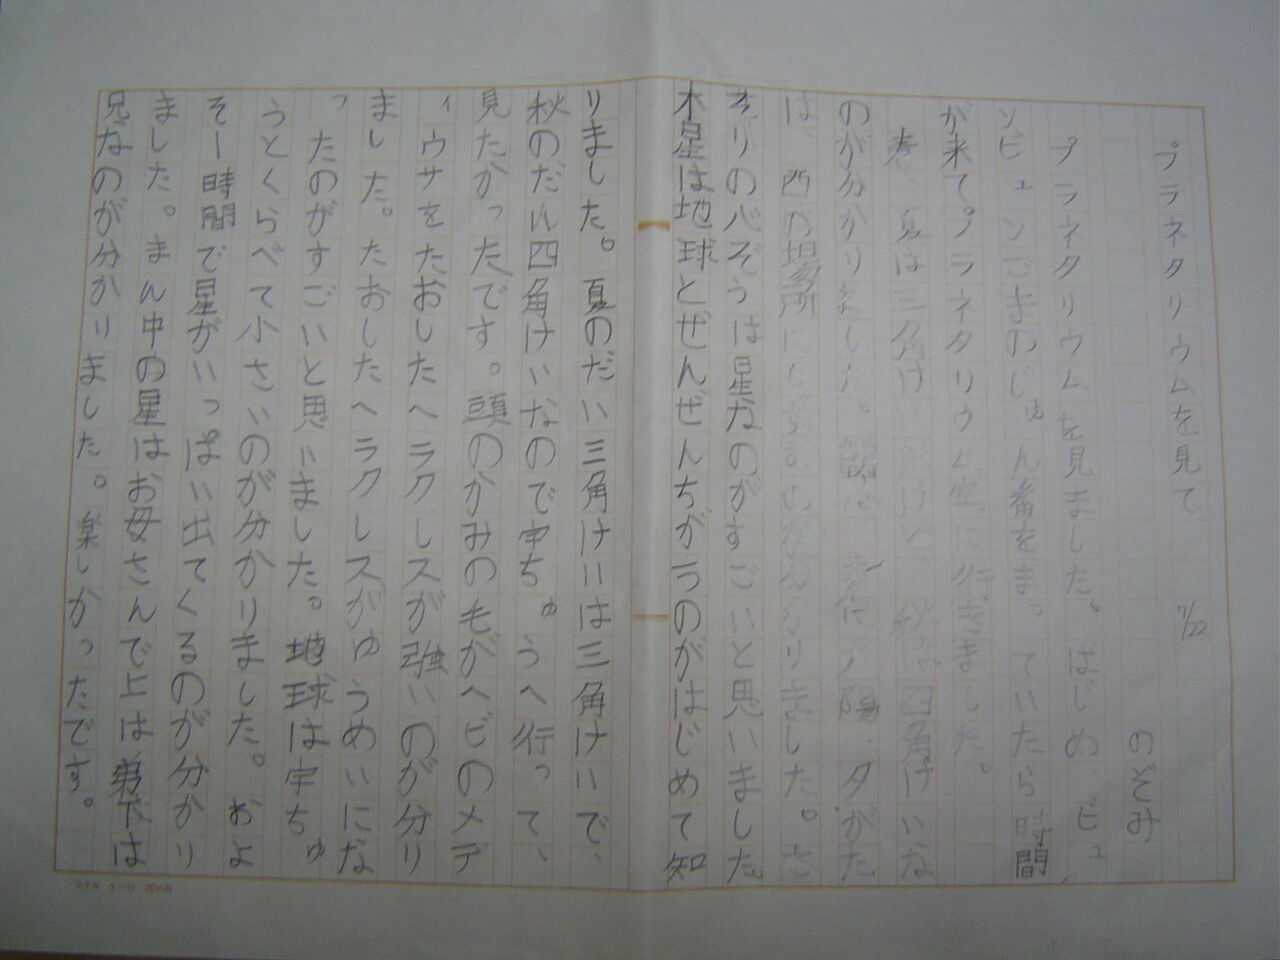 プラネタリウムを見て 7/22
のぞみ
プラネタリウムを見ました。はじめ、ビュ
ンビュンごまのじゅん番をまっていたら時間
が来てプラネタリウム室に行きました。
春、夏は三角け 秋は四角けいな
のが分かりました。朝は東に太陽、夕がた
は、西の場所にしずむのが分かりました。さ
そりの心ぞうは星なのがすごいと思いました。
木星は地球とぜんぜんちがうのがはじめて知
りました。夏のだい三角けいは三角けいで、
秋のだい四角けいなので宇ちゅうへ行って、
見たかったです。頭のかみの毛がヘビのメデ
ィウサをたおしたヘラクレスが強いのが分り
ました。たおしたヘラクレスがゆうめいにな
ったのがすごいと思いました。地球は宇ちゅ
うとくらべて小さいのが分かりました。およ
そ一時間で星がいっぱい出てくるのが分かり
ました。まん中の星はお母さんで上は弟下は
兄なのが分かりました。楽しかったです。